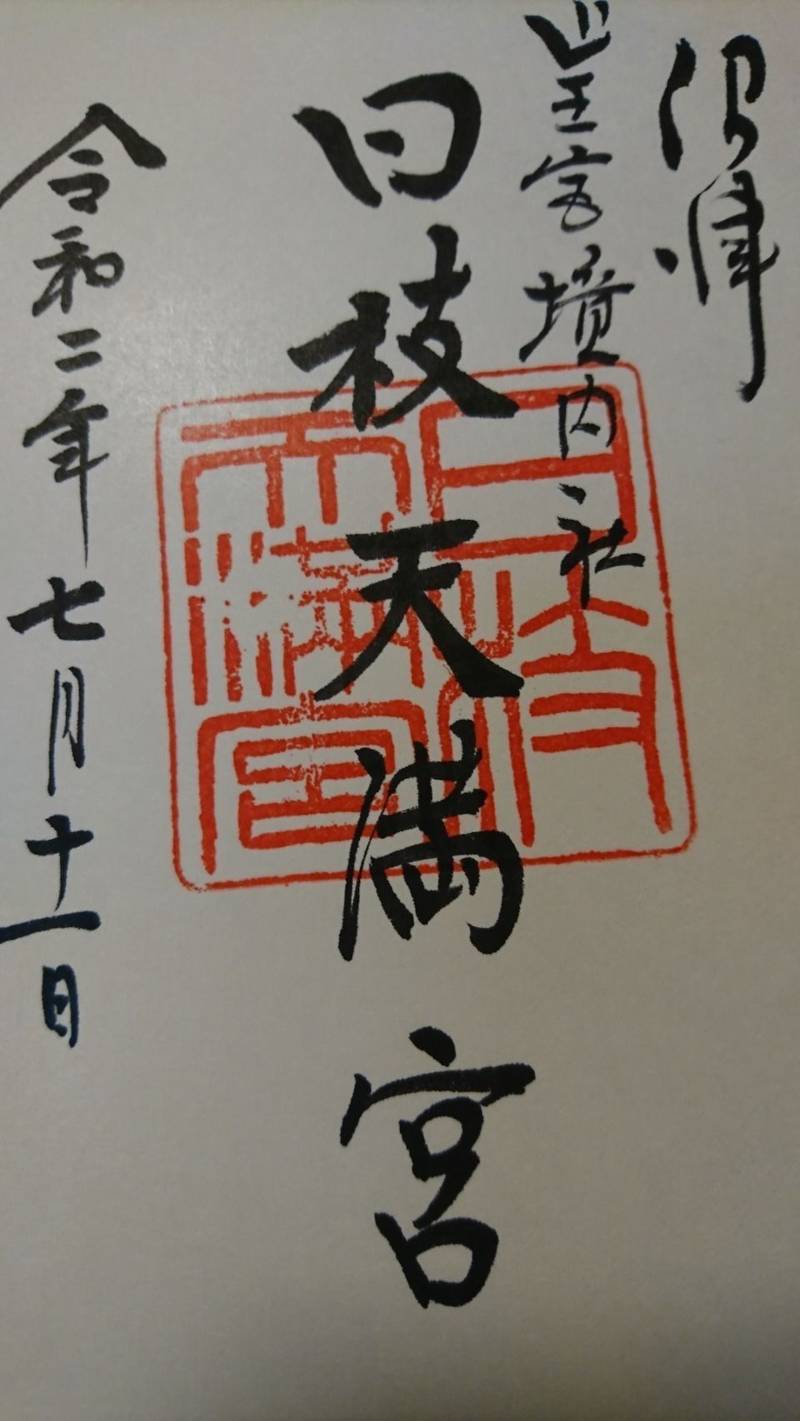 仍拝
山王宮境内社
日枝天満宮
令和二年七月十一日
日枝
天満宮